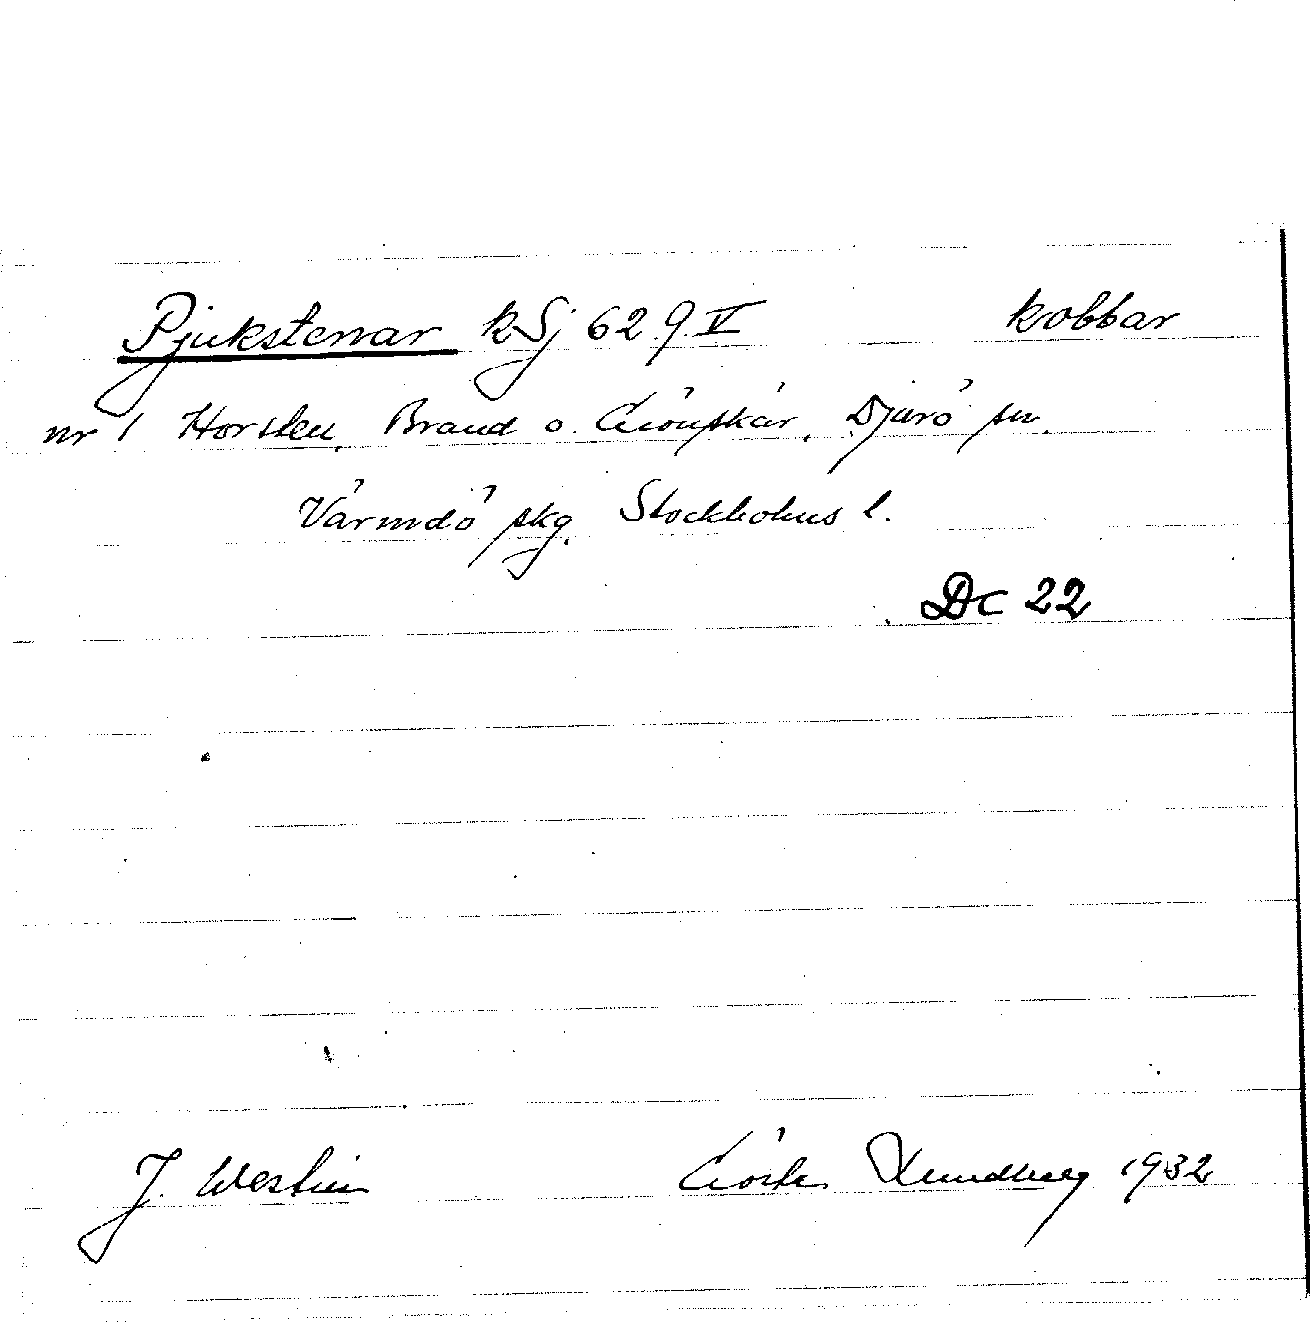 Pjukstenar kSj 629.V kobbar
nr 1 Horsten, Brand o. Grönskär, Djurö sn.
Värmdö skg. Stockholms l.
DC 22
J. Westin Gösta Lundberg 1932